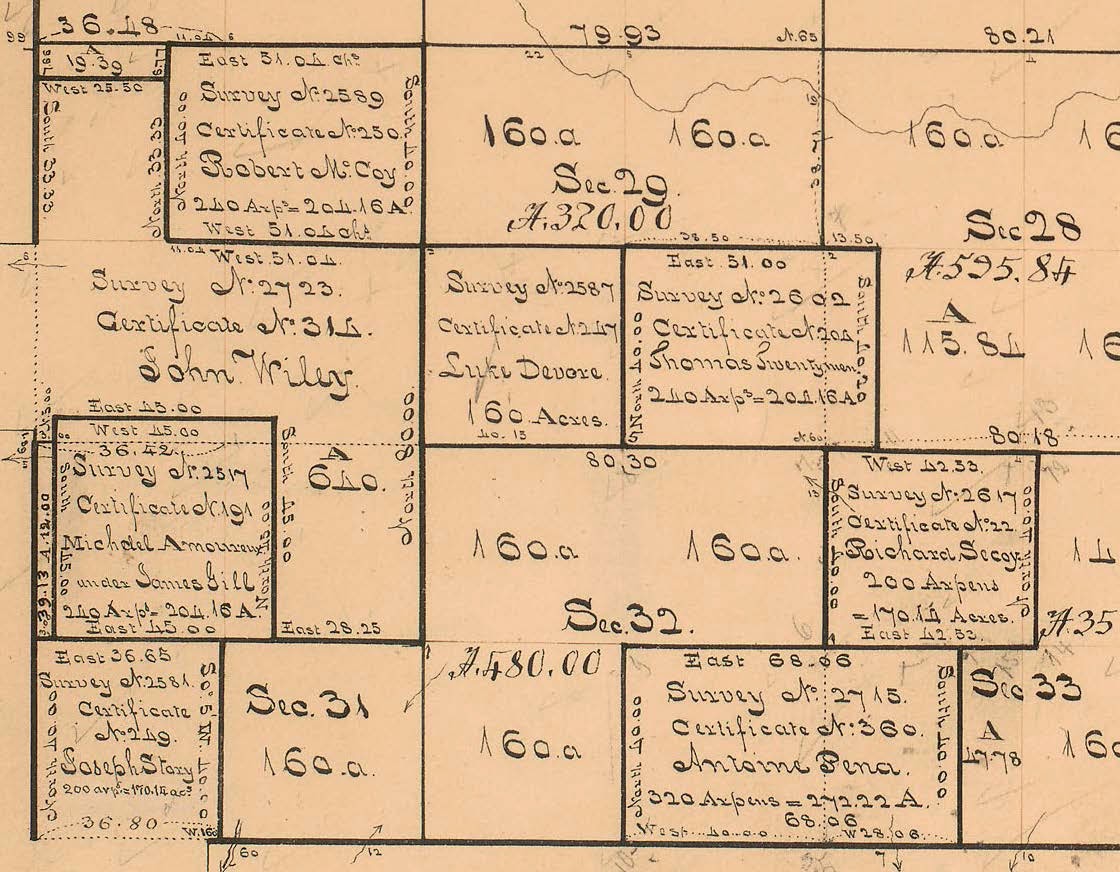 36.48
79.93
80.21
99
11.04
6
N.65
22
A
19.39
West 25.50
South 33.33
North 33.33
East 51.04 Chs
Survey No. 2589
Certificate No. 250.
Robert McCoy
240 Arps = 204.16 A.
West 51.04 chs
North 40.00
South 40.00
160.a
160.a
Sec. 29.
A. 320.00
38.50
13.50
160.a
Sec 28
A. 595.84
A
115.84
11.04
West 51.04
Survey No. 2723.
Certificate No. 314.
John Wiley
A
640.
North 80.00
East 45.00
South 45.00
East 28.25
Survey No. 2587
Certificate No. 247
Luke Devore.
160 Acres.
40.15
East 51.00
Survey No. 2602
Certificate No. 204
Thomas Twentymen
240 Arps = 204.16 A
North 40.00
N.60
80.18
West 45.00
36.42
Survey No. 2517
Certificate No. 191
Michael Amoureux
under James Gill
240 Arps = 204.16 A.
East 45.00
South 45.00
North 45.00
39.13
80.30
160.a
160.a.
Sec. 32.
A. 480.00
160.a
West 42.53.
Survey No. 2617
Certificate No. 22
Richard Secoy
200 Arpens
= 170.14 Acres.
East 42.53.
South 40.00
North 40.00
A. 35
East 36.65
Survey No. 2581.
Certificate
No. 249.
Joseph Story
200 arps = 170.14 acs
36.80
North 40.00
W.16
Sec. 31
160.a.
East 68.06
Survey No. 2715.
Certificate No. 360.
Antoine Pena.
320 Arpens = 272.22 A.
68.06
West 40.00
W 28.06
North 40.00
South 40.00
Sec 33
A
47.78
60
12
7
10